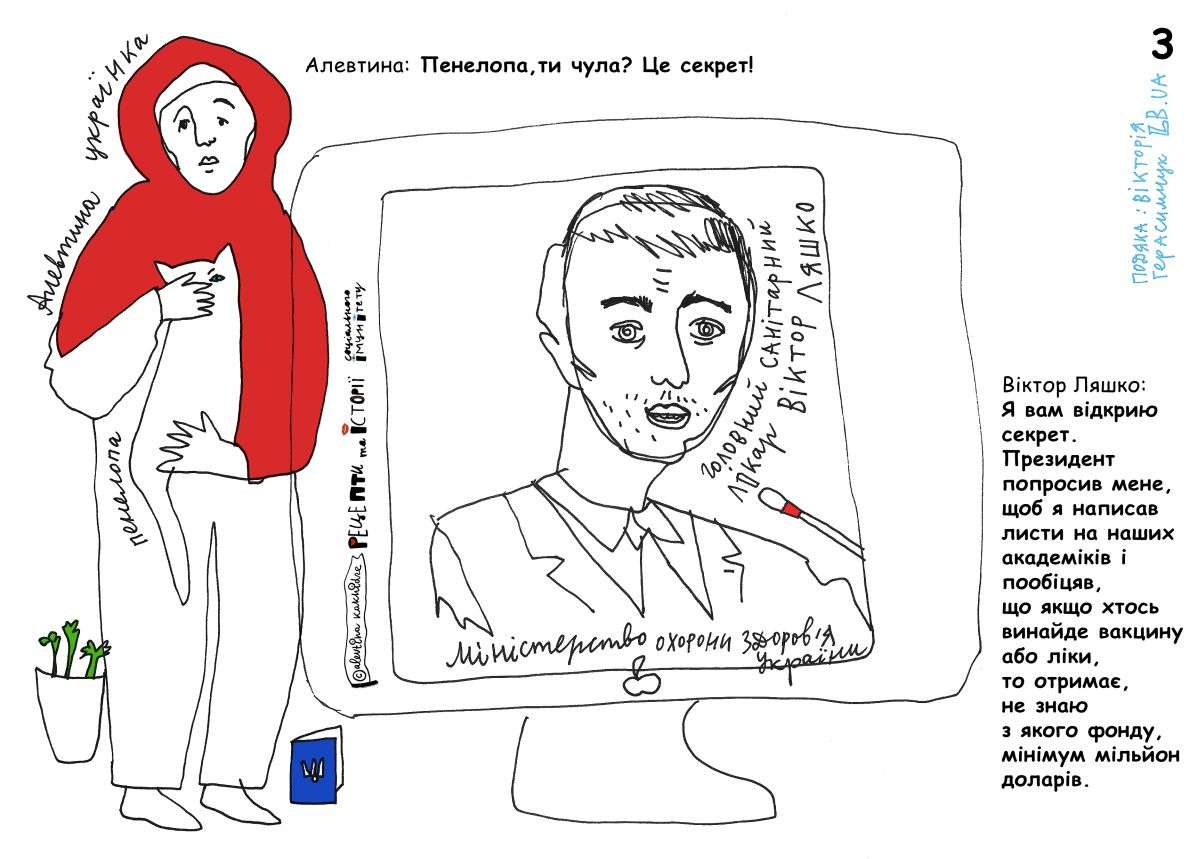 3
Алевтина: Пенелопа,ти чула? Це секрет!
Алевтина українка
пенелопа
©alevtina kakhidze
РЕЦЕПТИ та ІСТОРІЇ
соціального
імунітету
головний САНІТАРНИЙ
лікар ВІКТОР ЛЯШКО
Міністерство охорони здоров'я
України
ПОДЯКА: ВІКТОРІЯ
ГЕРАСИМЧУК LB.UA
Віктор Ляшко:
Я вам відкрию
секрет.
Президент
попросив мене,
щоб я написав
листи на наших
академіків і
пообіцяв,
що якщо хтось
винайде вакцину
або ліки,
то отримає,
не знаю
з якого фонду,
мінімум мільйон
доларів.